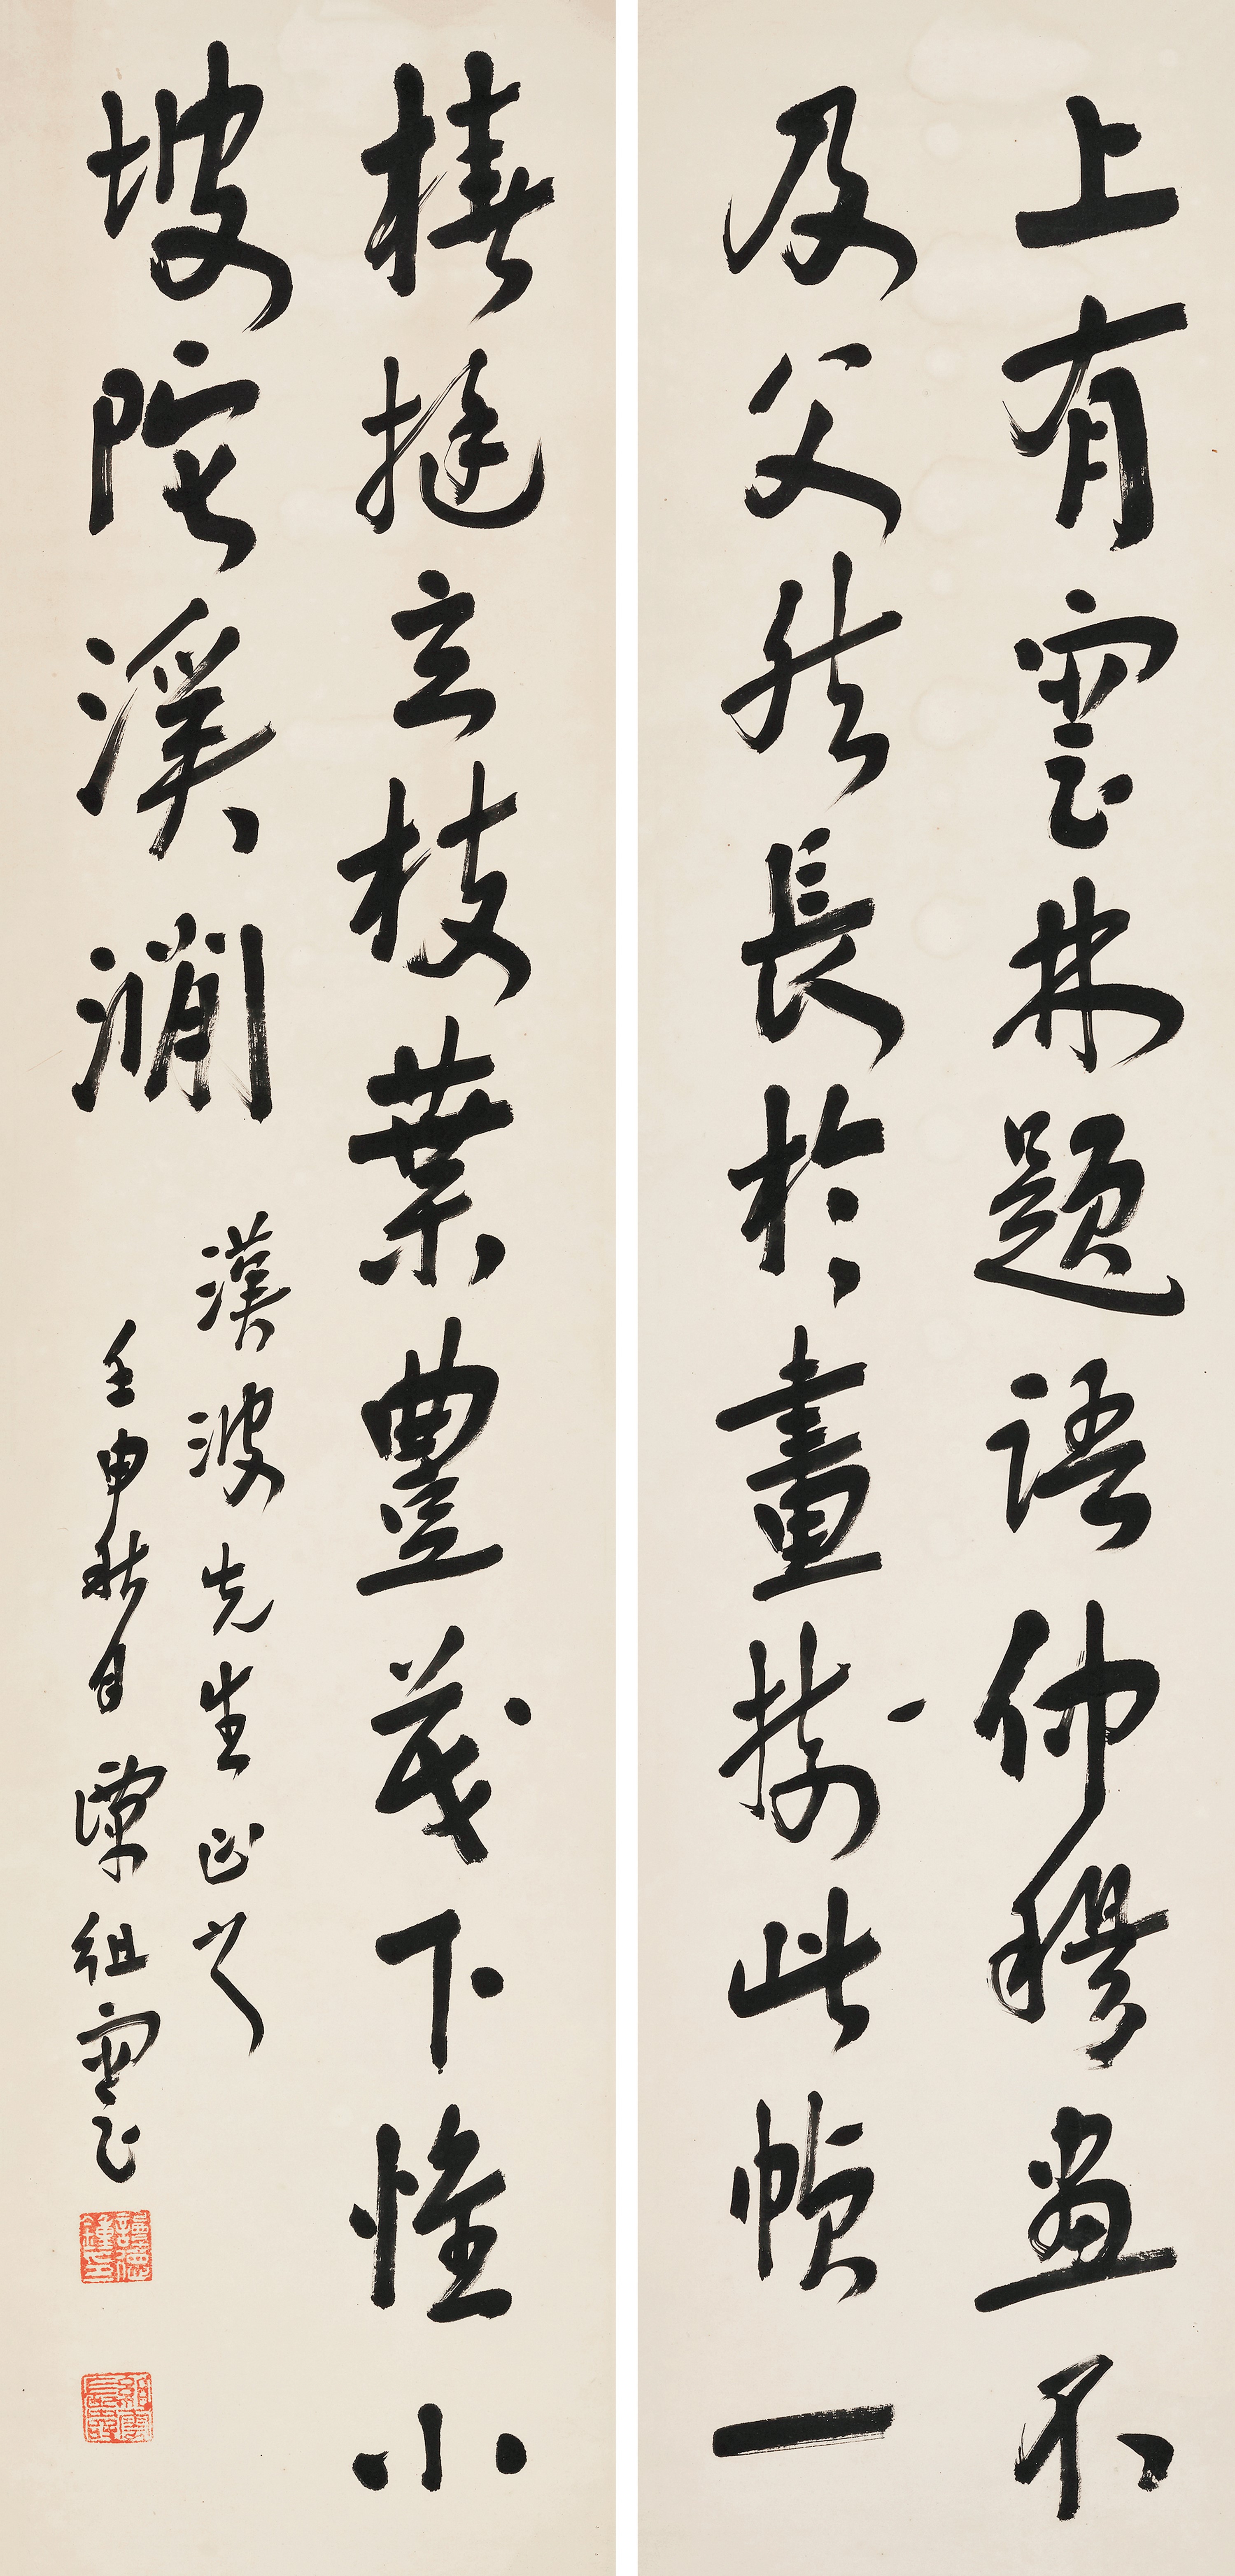 上有雲林題語仲穆畫不
及父然長於畫樹此幀一
椿挺立枝葉豐茂下惟小
坡陀溪澗
漢波先生正之
壬申秋日 譚組雲
譚德鍾印